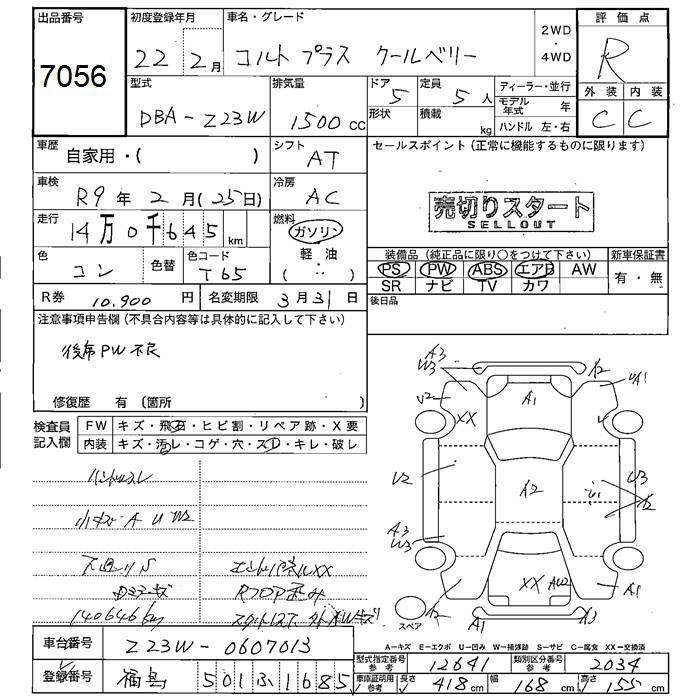 出品番号
7056
初度登録年月
22年 2月
車名・グレード
コルト プラス クールベリー
2WD
・
4WD
評価点
R
外装 内装
C C
型式
DBA-Z23W
排気量
1500 cc
ドア 5
形状
定員 5 人
積載 kg
ディーラー・並行
モデル年式 年
ハンドル 左・右
車歴
自家用・( )
シフト
AT
車検
R9 年 2 月 (25日)
冷房
AC
走行
14万0千645 km
燃料
ガソリン
軽油
( ・ )
色
コン
色替
色コード
T65
R券 10,900 円
名変期限 3月31日
セールスポイント (正常に機能するものに限ります)
売切りスタート
SELLOUT
装備品 (純正品に限り○をつけて下さい)
新車保証書
PS PW ABS エアB AW
有・無
SR ナビ TV カワ
後日品
注意事項申告欄 (不具合内容等は具体的に記入して下さい)
後席PW不良
修復歴 有 (箇所 )
検査員記入欄
FW キズ・飛石・ヒビ割・リペア跡・X要
内装 キズ・汚レ・コゲ・穴・スレ・キレ・破レ
ハンドルスレ
小キズ A U W2
140646km
A3
W3
U2
XX
A1
A2
U2
A2
A3
W3
U3
A2
XX AU2
A2
A1
A3
A1
スペア
A-キズ E-エクボ U-凹み W-補修跡 S-サビ C-腐食 XX-交換済
車台番号 Z23W-0607013
登録番号 福島 501ふ1685
型式指定番号 参考 12641
類別区分番号 参考 2034
車庫証明用 参考 長さ 418 cm 幅 168 cm 高さ 155 cm